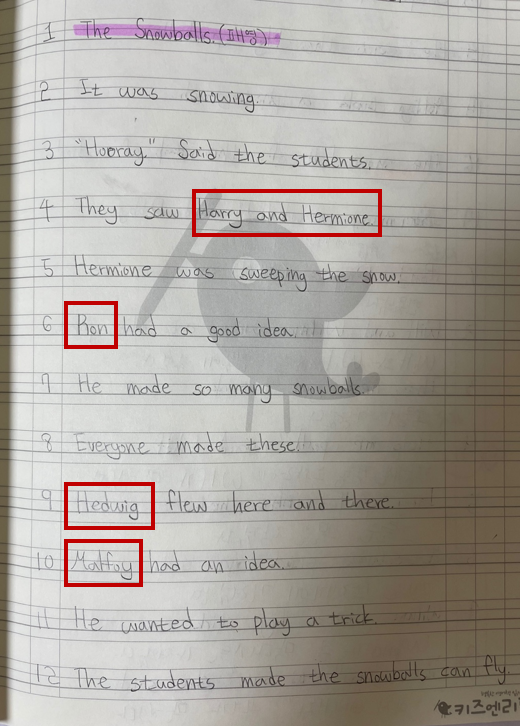 1 The Snowballs. (파생)
2 It was snowing.
3 "Hooray." Said the students.
4 They saw Harry and Hermione.
5 Hermione was sweeping the snow.
6 Ron had a good idea.
7 He made so many snowballs.
8 Everyone made these.
9 Hedwig flew here and there.
10 Malfoy had an idea.
11 He wanted to play a trick.
12 The students made the snowballs can fly.
키즈엔리